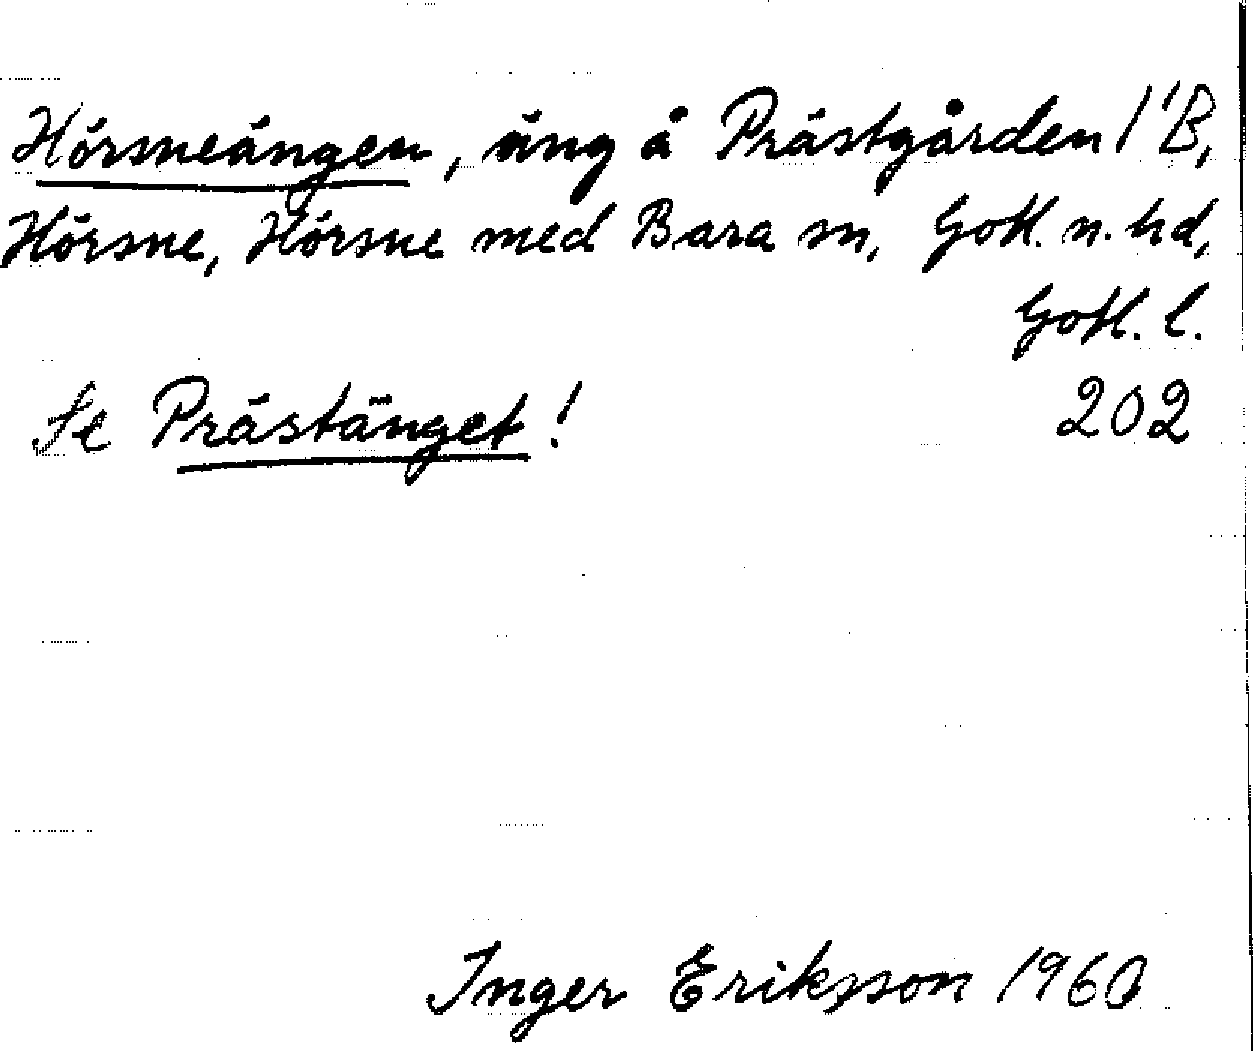 Hörsneängen, äng å Prästgården 1'B,
Hörsne, Hörsne med Bara sn, Gotl. n. hd,
Gotl. l.
Se Prästänget! 202
Inger Eriksson 1960